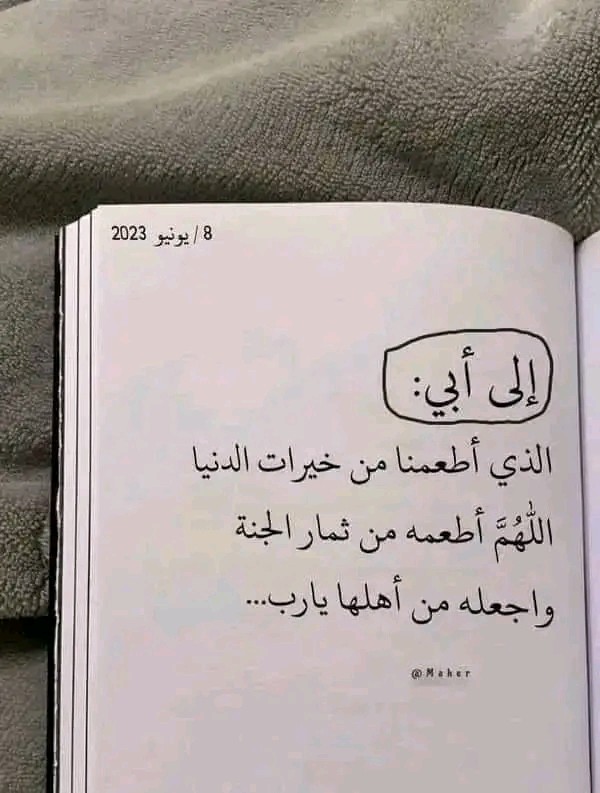 8 / يونيو 2023
إلى أبي:
الذي أطعمنا من خيرات الدنيا
اللّهُمَّ أطعمه من ثمار الجنة
واجعله من أهلها يارب...
@Maher